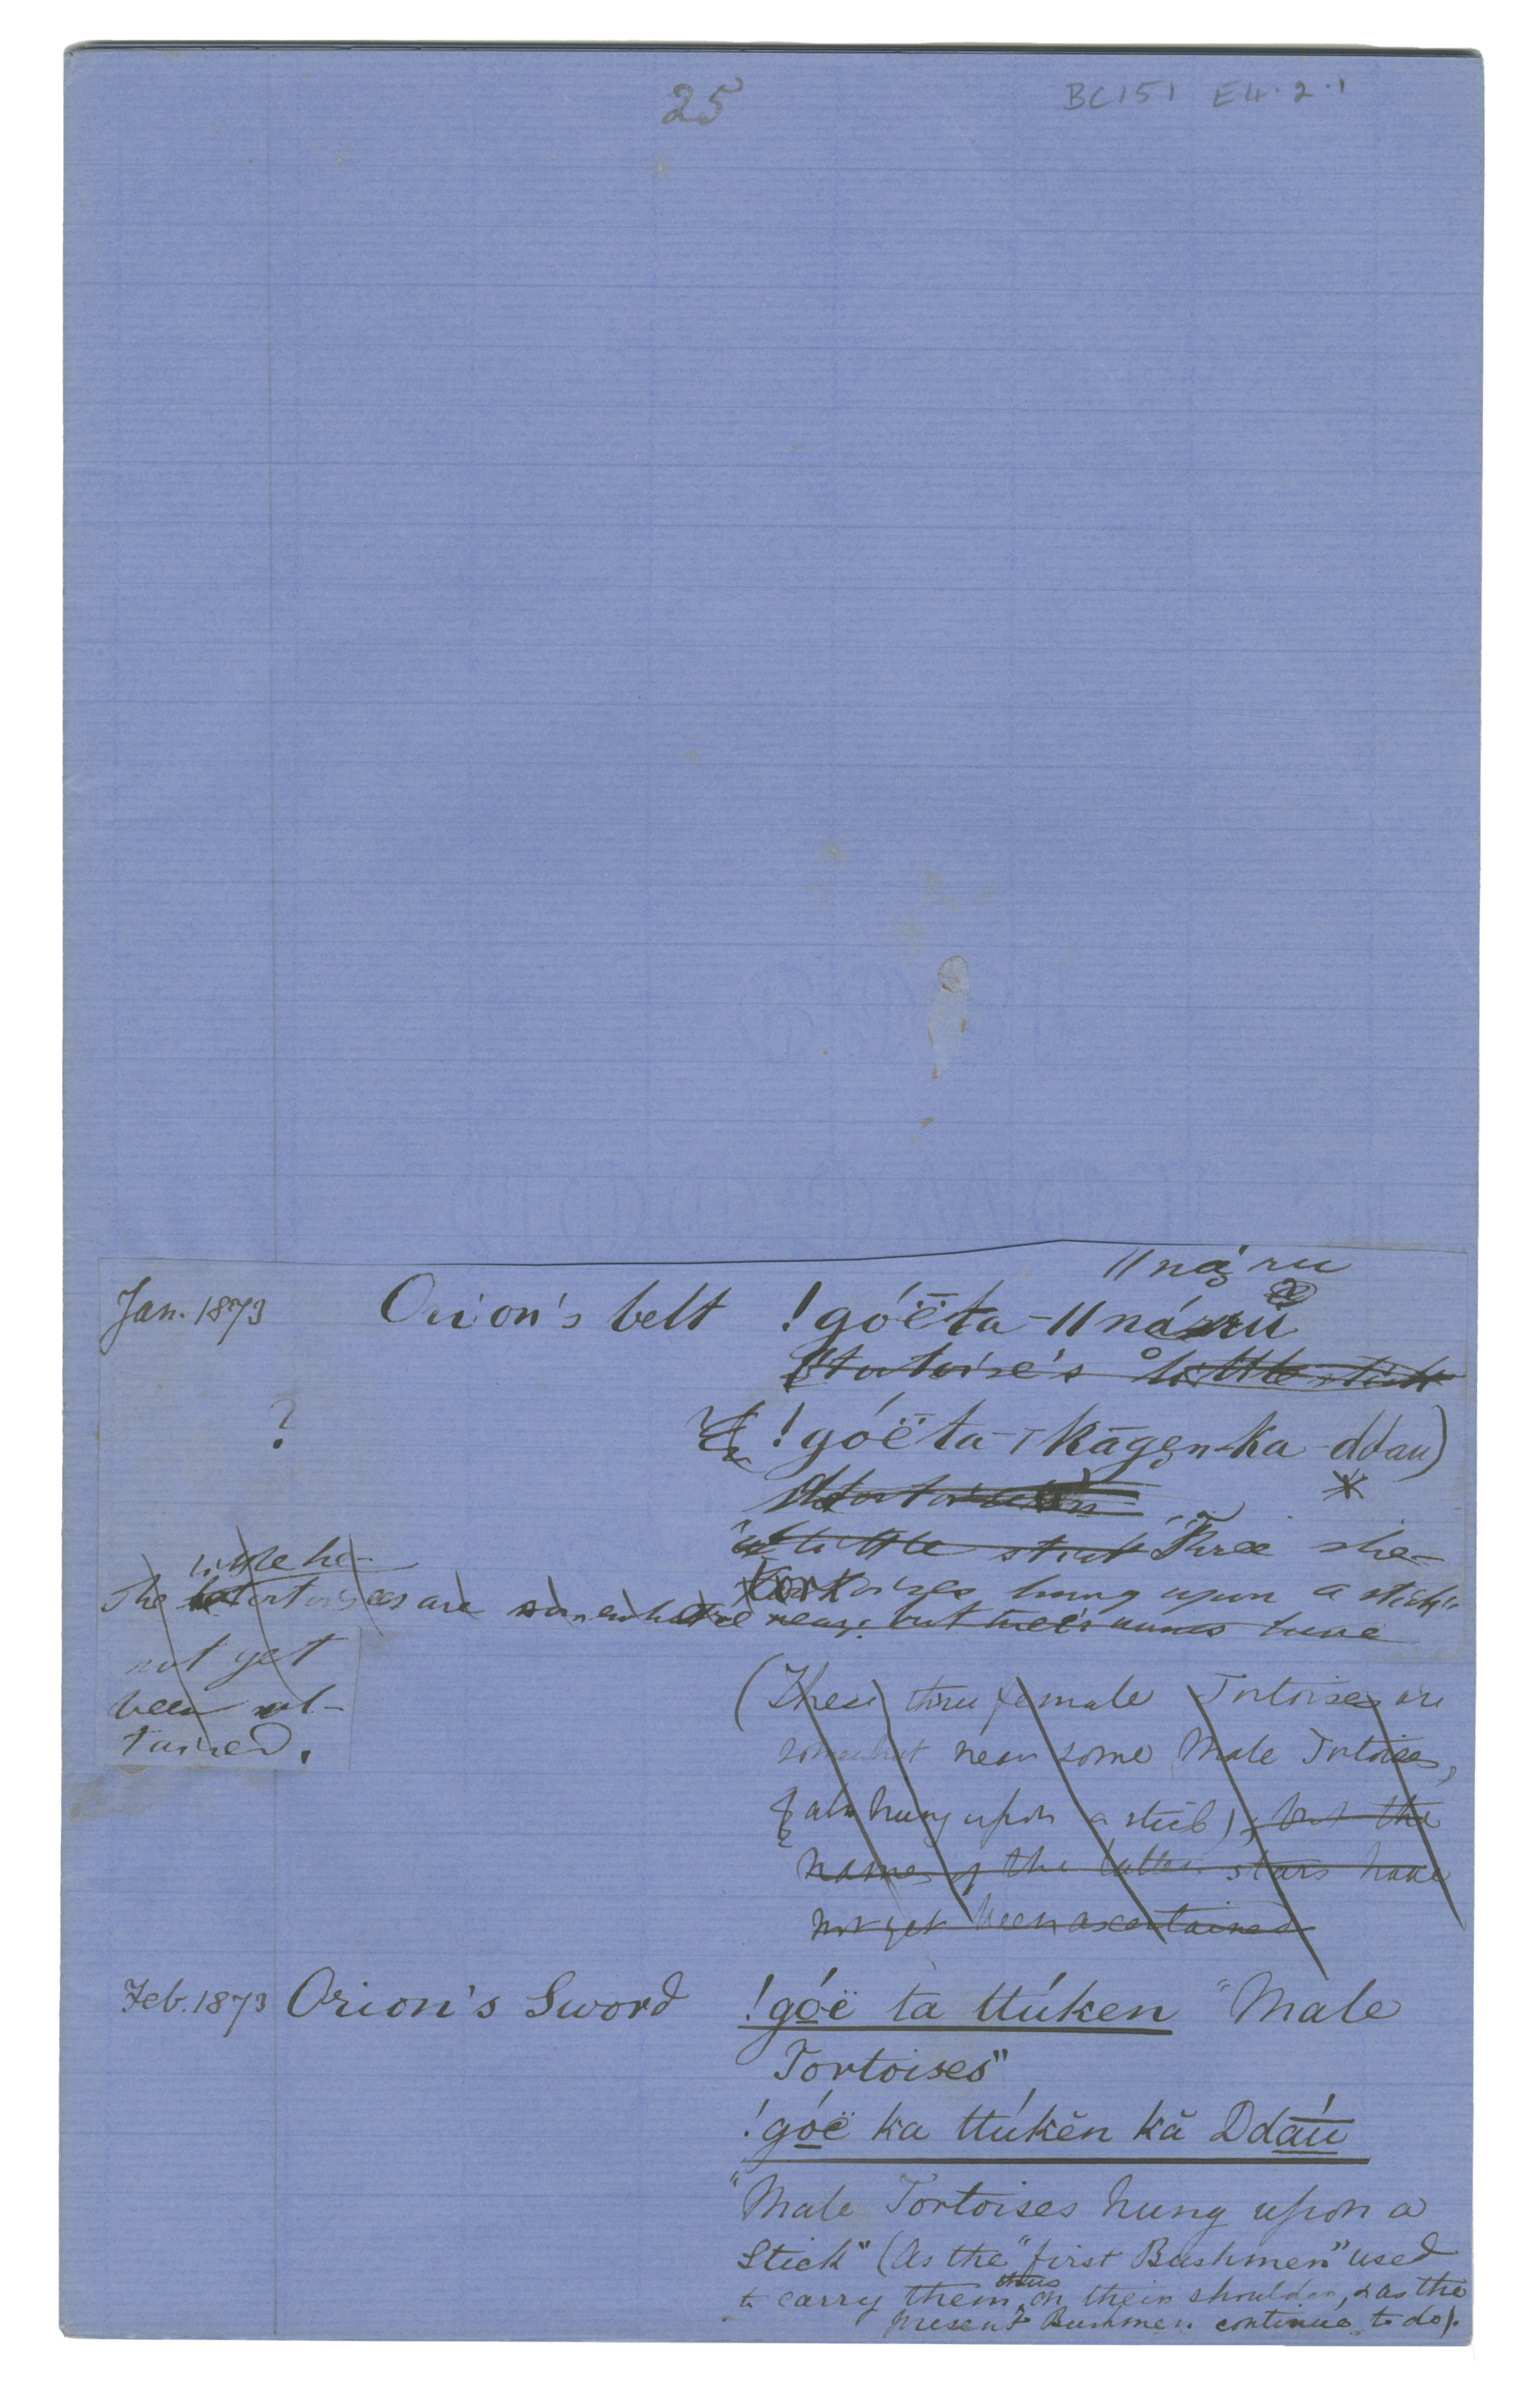 25 BC151 E4.2.1
||náru
Jan. 1873 Orion's belt !góëta-||náru
tortoise's little stick
?
!góëta-kāgen-ka-ddau)
*
little stick "Three she-
little he-
tortoises hung upon a stick"
The tortoises are somewhere near; but their names have
not yet
been ob-
tained.
(These three female Tortoises are
somewhat near some Male Tortoises,
hung upon a stick); but the
names of the latter stars have
not yet been ascertained
Feb. 1873 Orion's Sword !góë ta ttúken "Male
Tortoises"
!góë ka ttúkĕn kă Ddáu
"Male Tortoises hung upon a
Stick" (As the "first Bushmen" used
thus
to carry them on their shoulder, & as the
present Bushmen continue to do).